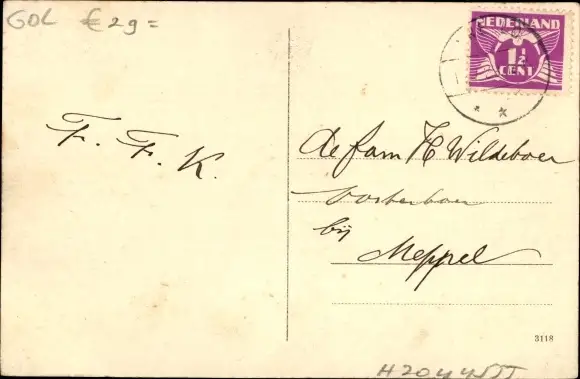 GOL € 29 =
NEDERLAND
1½
CENT
F. F. K.
de fam H Wildeboer
Oosterboer
bij
Meppel
3118